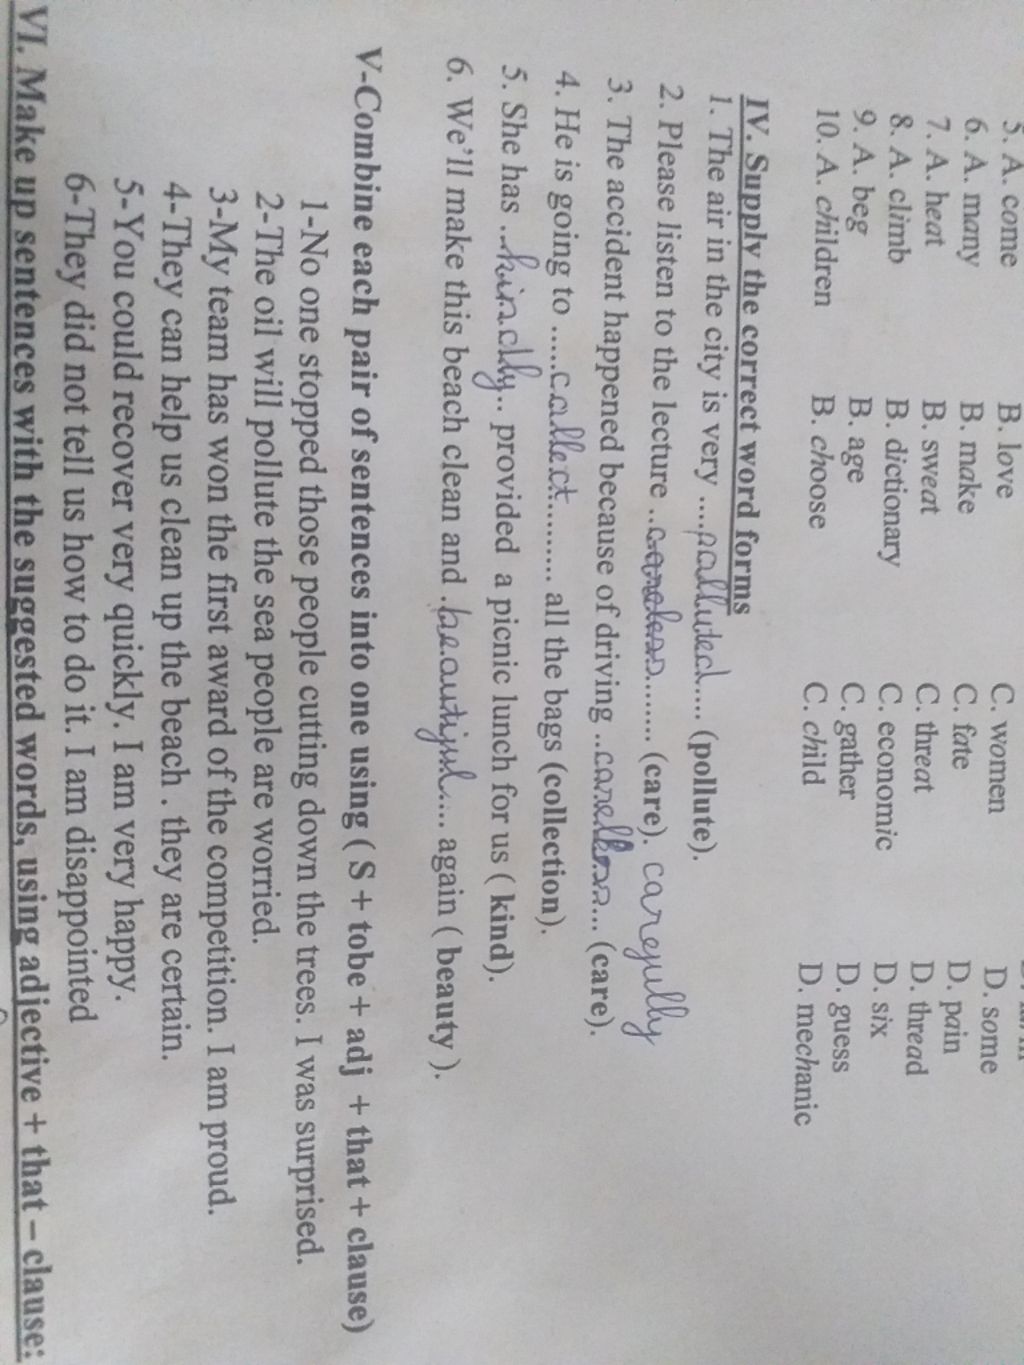 5. A. come B. love C. women D. some
6. A. many B. make C. fate D. pain
7. A. heat B. sweat C. threat D. thread
8. A. climb B. dictionary C. economic D. six
9. A. beg B. age C. gather D. guess
10. A. children B. choose C. child D. mechanic
IV. Supply the correct word forms
1. The air in the city is very ....polluted.... (pollute).
2. Please listen to the lecture ..careless....... (care). carefully
3. The accident happened because of driving ..carelless... (care).
4. He is going to .....collect......... all the bags (collection).
5. She has ..kindly.. provided a picnic lunch for us ( kind).
6. We'll make this beach clean and .beautiful.... again ( beauty ).
V-Combine each pair of sentences into one using ( S + tobe + adj + that + clause)
1-No one stopped those people cutting down the trees. I was surprised.
2-The oil will pollute the sea people are worried.
3-My team has won the first award of the competition. I am proud.
4-They can help us clean up the beach . they are certain.
5-You could recover very quickly. I am very happy.
6-They did not tell us how to do it. I am disappointed
VI. Make up sentences with the suggested words, using adjective + that – clause: